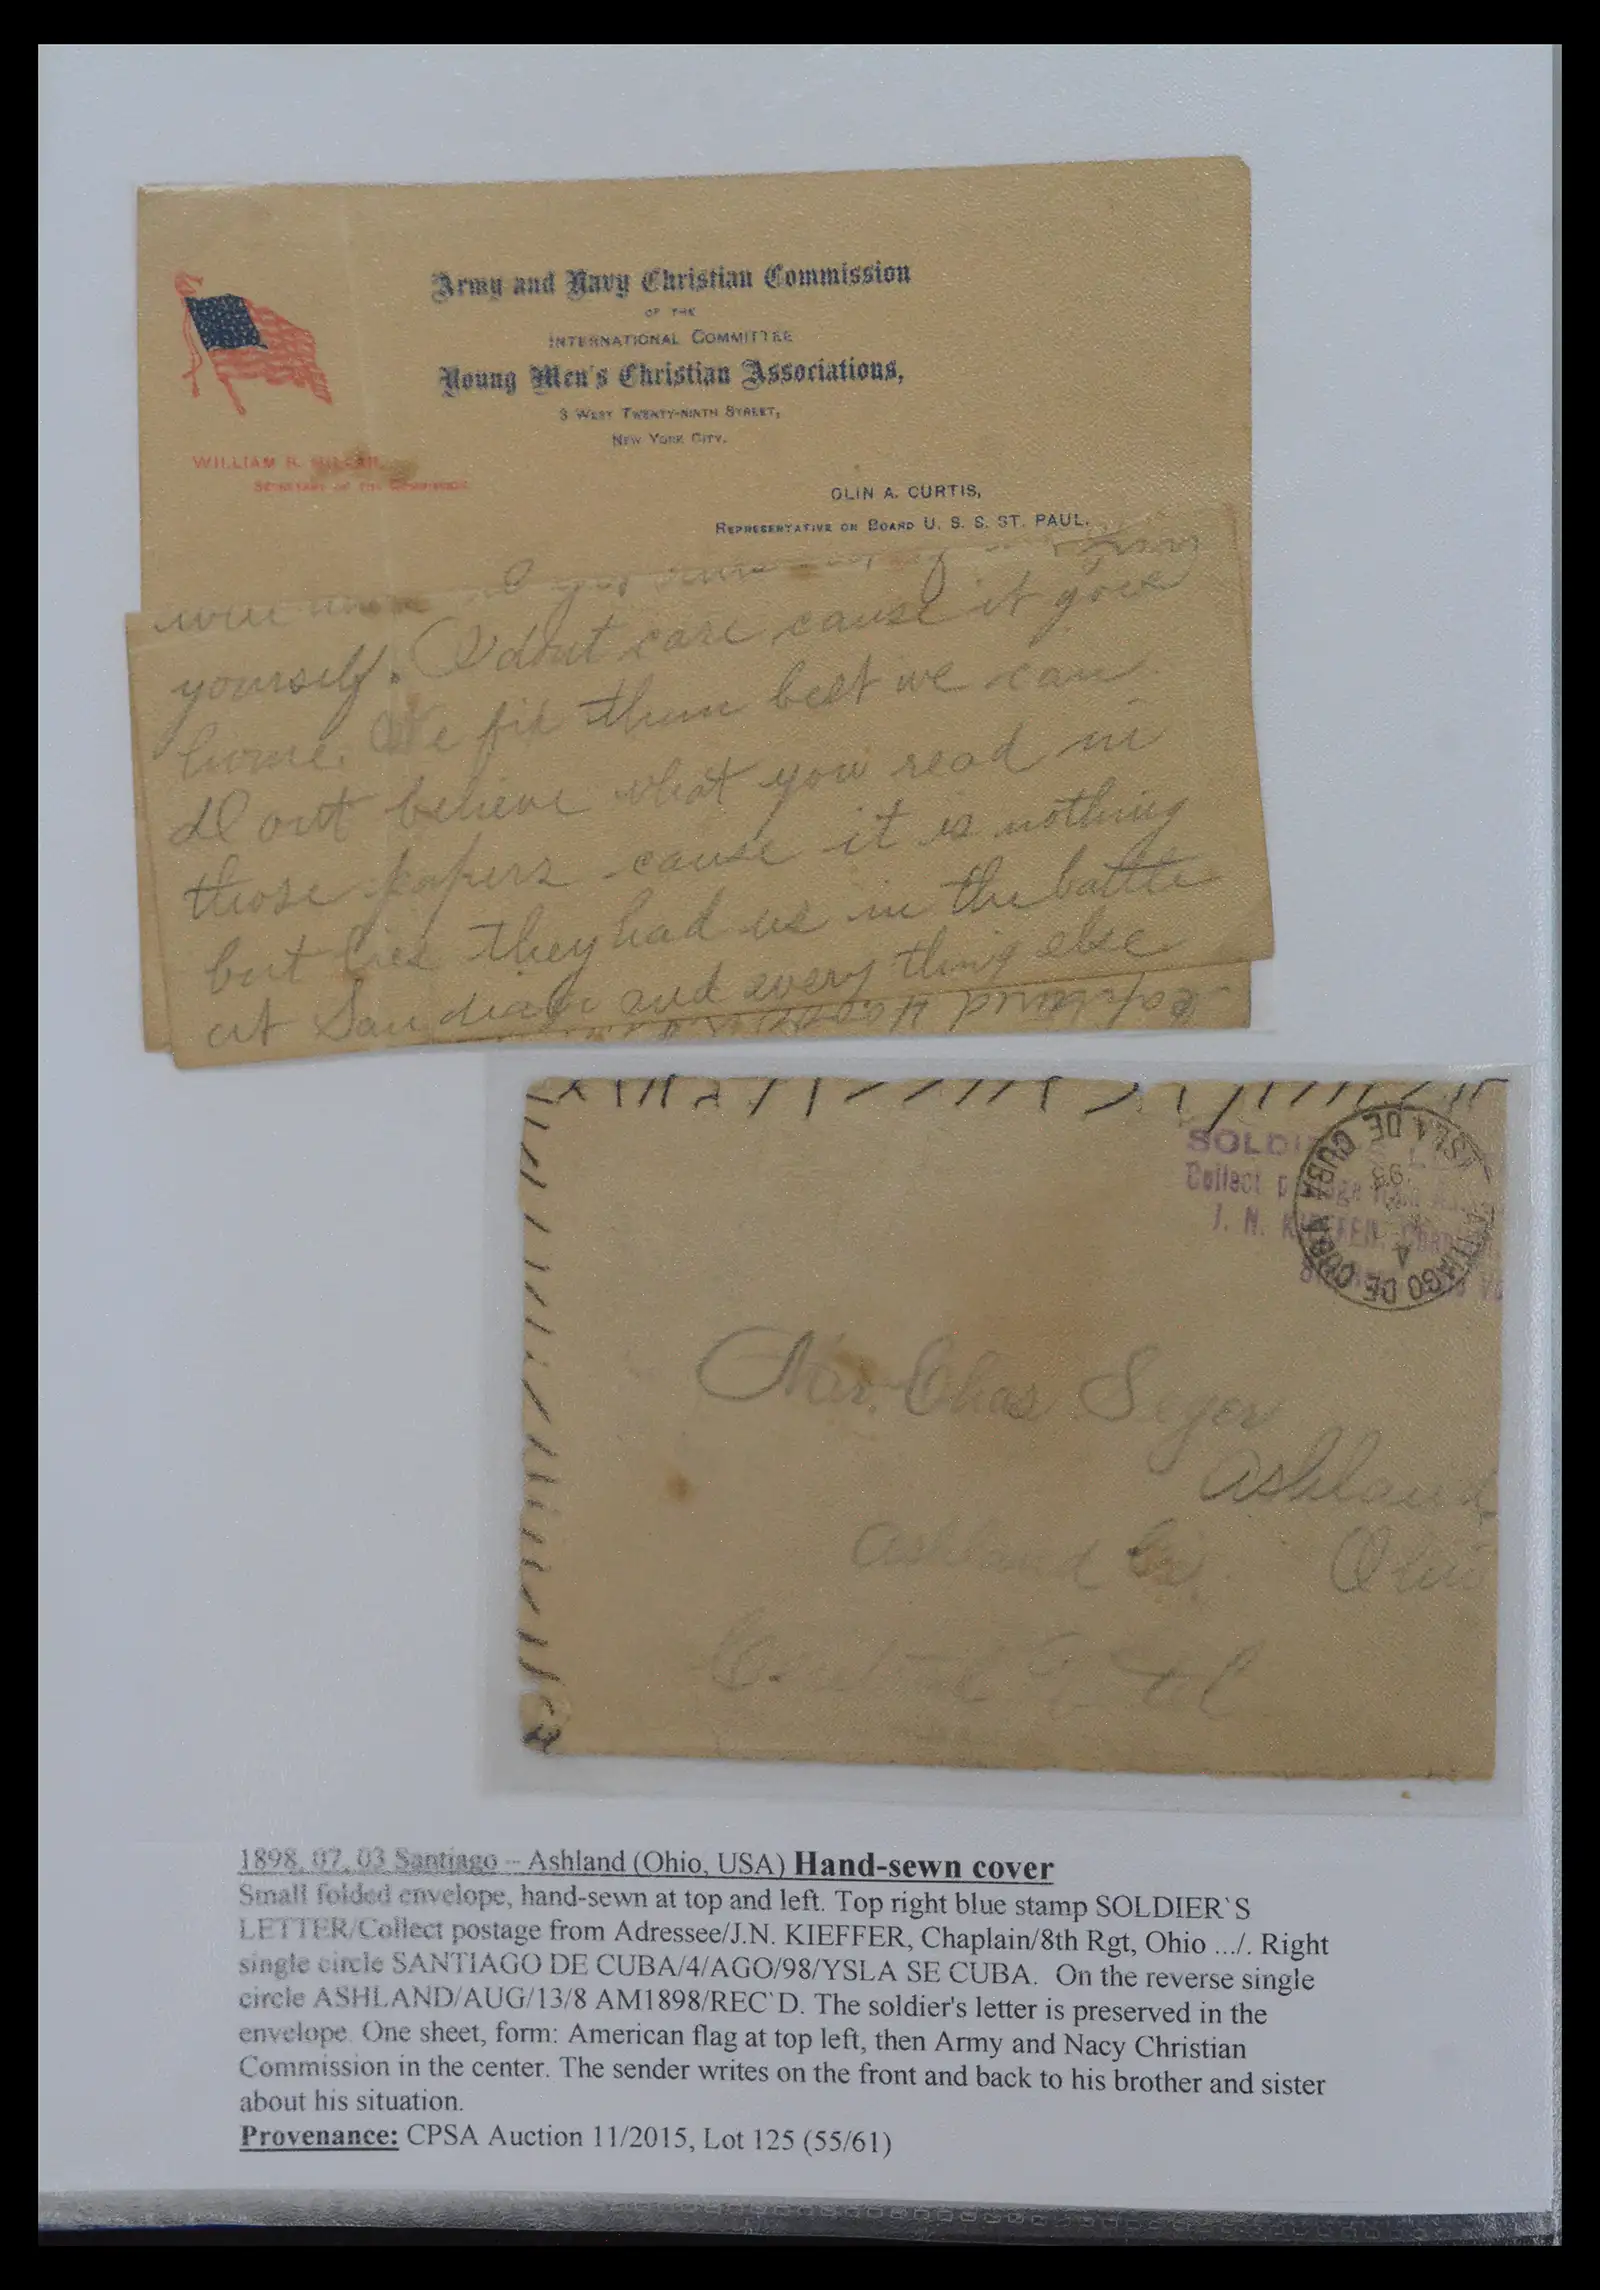 Army and Navy Christian Commission
OF THE
INTERNATIONAL COMMITTEE
Young Men's Christian Associations,
3 WEST TWENTY-NINTH STREET,
NEW YORK CITY.
WILLIAM B.
SECRETARY OF THE COMMISSION
OLIN A. CURTIS,
REPRESENTATIVE ON BOARD U. S. S. ST. PAUL.
yourself. I dont care cause it goes
home. We fix them best we can
dont believe what you read in
those papers cause it is nothing
but lies they had us in the battle
at San and every thing else
SOLDIE
Collect
J. N. KIEFFER, Chaplain,
YSLA DE CUBA
98
4
SANTIAGO DE CUBA
Mr. Chas Seger
Ashland
Ashland Co. Ohio
1898. 07. 03 Santiago – Ashland (Ohio, USA) Hand-sewn cover
Small folded envelope, hand-sewn at top and left. Top right blue stamp SOLDIER`S
LETTER/Collect postage from Adressee/J.N. KIEFFER, Chaplain/8th Rgt, Ohio .../. Right
single circle SANTIAGO DE CUBA/4/AGO/98/YSLA SE CUBA. On the reverse single
circle ASHLAND/AUG/13/8 AM1898/REC`D. The soldier's letter is preserved in the
envelope. One sheet, form: American flag at top left, then Army and Nacy Christian
Commission in the center. The sender writes on the front and back to his brother and sister
about his situation.
Provenance: CPSA Auction 11/2015, Lot 125 (55/61)